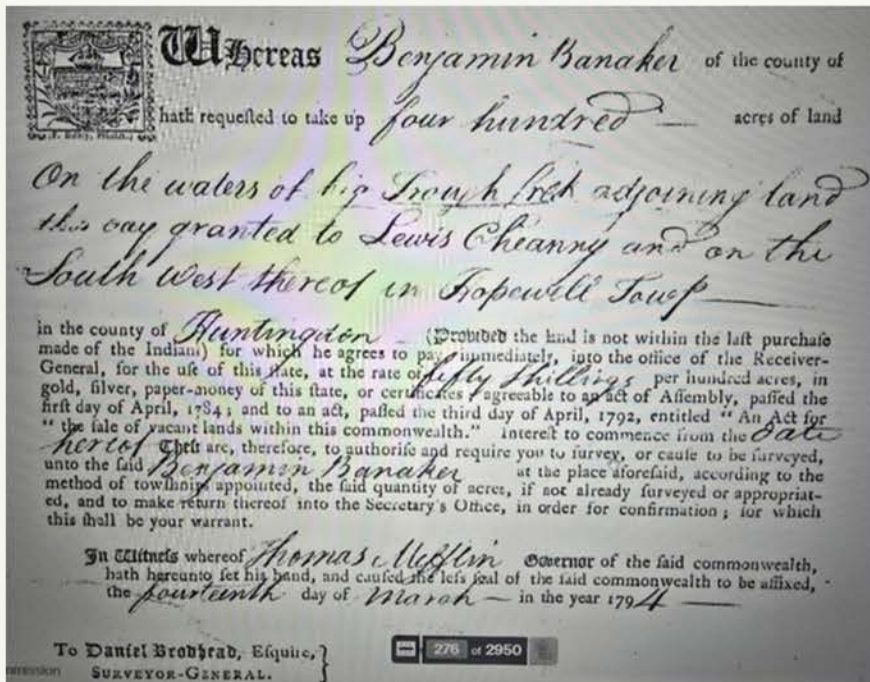 Whereas Benjamin Banaker of the county of
hath requested to take up four hundred — acres of land
On the waters of big Trough Crek adjoining land
this day granted to Lewis Cheanny and on the
South West thereof in Hopewell Towp
in the county of Huntingdon (Provided the land is not within the laſt purchaſe
made of the Indians) for which he agrees to pay immediately, into the office of the Receiver-
General, for the uſe of this ſtate, at the rate of fifty shillings per hundred acres, in
gold, ſilver, paper-money of this ſtate, or certificates agreeable to an act of Aſſembly, paſſed the
firſt day of April, 1784; and to an act, paſſed the third day of April, 1792, entitled "An Act for
"the ſale of vacant lands within this commonwealth." Intereſt to commence from the date
hereof Theſe are, therefore, to authoriſe and require you to ſurvey, or cauſe to be ſurveyed,
unto the ſaid Benjamin Banaker at the place aforeſaid, according to the
method of townſhips appointed, the ſaid quantity of acres, if not already ſurveyed or appropriat-
ed, and to make return thereof into the Secretary's Office, in order for confirmation; for which
this ſhall be your warrant.
In Witneſs whereof Thomas Mifflin Governor of the ſaid commonwealth,
hath hereunto ſet his hand, and cauſed the leſs ſeal of the ſaid commonwealth to be affixed,
the fourteenth day of March — in the year 1794 —
To Daniel Brodhead, Eſquire,
SURVEYOR-GENERAL.
276 of 2950